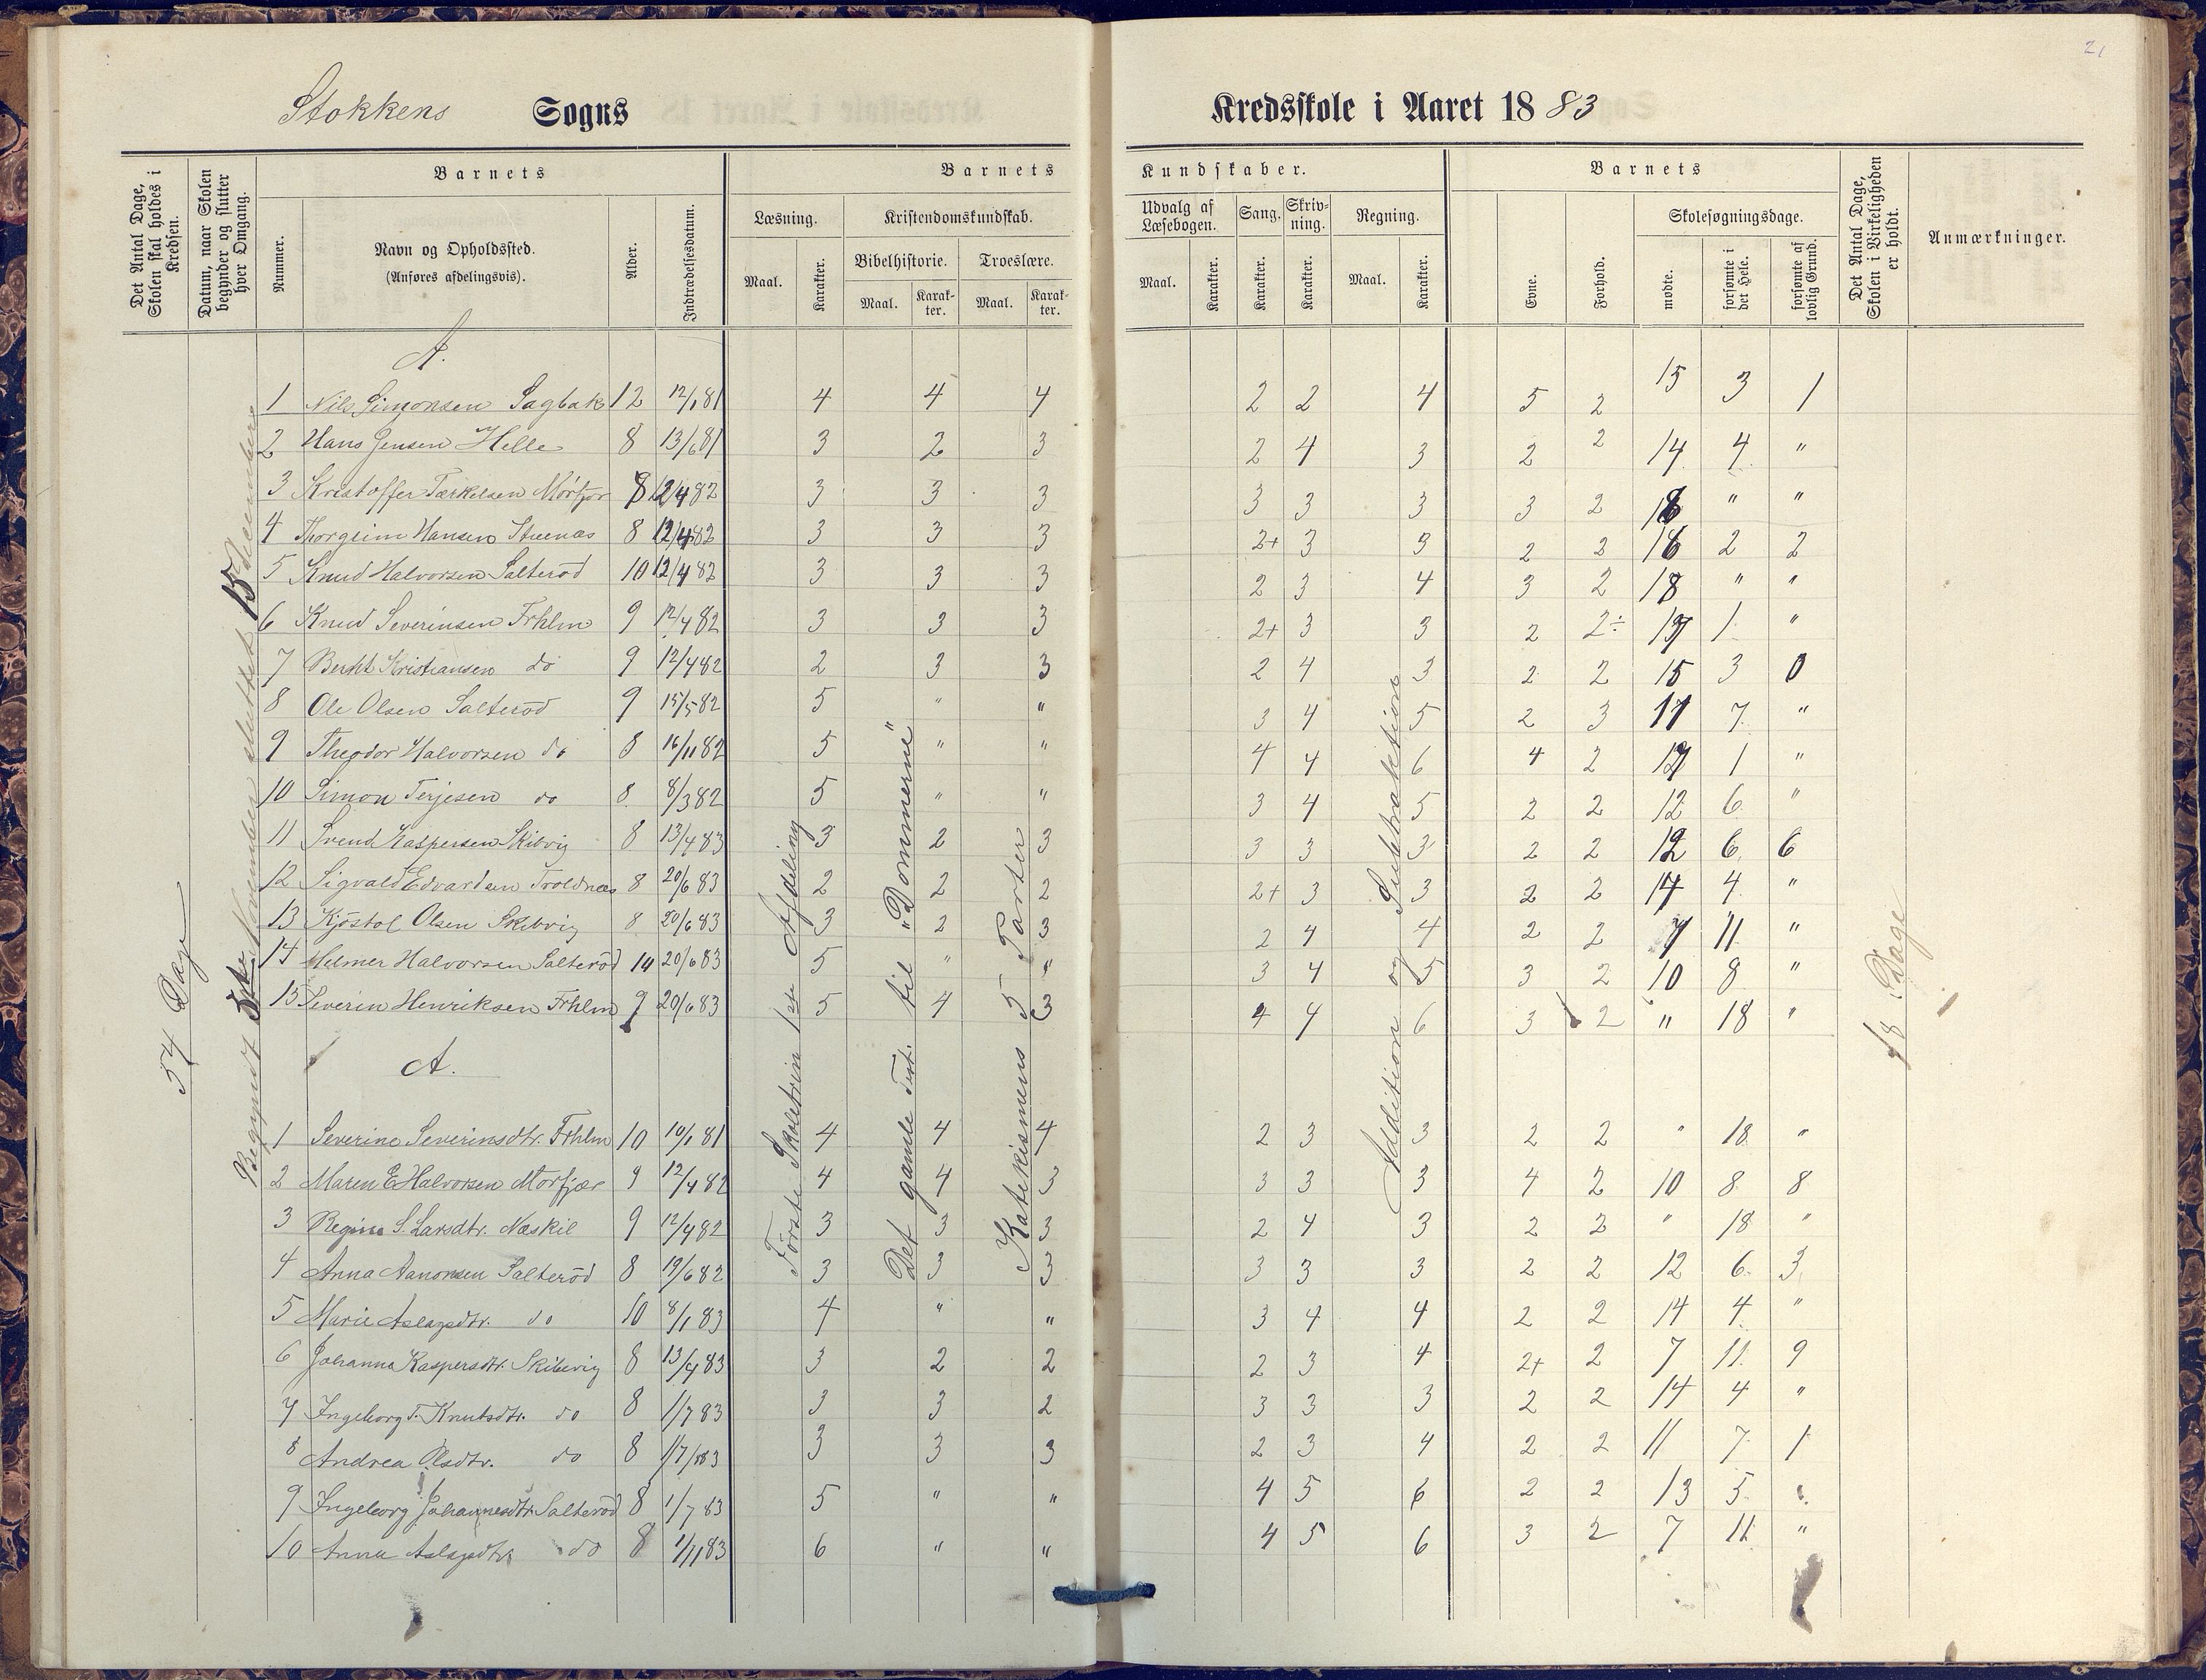 21
Stokkens Sogns Kredsskole i Aaret 1883
Det Antal Dage, Skolen skal holdes i Kredsen.
Datum, naar Skolen begynder og slutter hver Omgang.
Barnets
Nummer.
Navn og Opholdssted.
(Anføres afdelingsvis).
Alder.
Indtrædelsesdatum.
Barnets Kundskaber.
Læsning.
Maal. Karakter.
Kristendomskundskab.
Bibelhistorie. Troeslære.
Maal. Karakter. Maal. Karakter.
Udvalg af Læsebogen.
Maal. Karakter.
Sang. Karakter.
Skrivning. Karakter.
Regning.
Maal. Karakter.
Barnets
Evne. Forhold.
Skolesøgningsdage.
mødte. forsømte i det Hele. forsømte af lovlig Grund.
Det Antal Dage, Skolen i Virkeligheden er holdt.
Anmærkninger.
54 Dage
Begyndt November sluttet 15 December
Første Skoletrin 1ste Afdeling
Det gamle Test. til "Dommerne"
Katekismens 5 Parter
Addition og Subtraktion
18 Dage
A.
1 Nils Simonsen Sagbak 12 12/1 81 4 4 4 2 2 4 5 2 15 3 1
2 Hans Jensen Helle 8 13/6 81 3 2 3 2 4 3 2 2 14 4 "
3 Kristoffer Tærkelsen Mørfjær 8 12/4 82 3 3 3 3 3 3 3 2 18 " "
4 Thorgrim Hansen 8 12/4 82 3 3 3 2+ 3 3 2 2 16 2 2
5 Knud Halvorsen Salterød 10 12/4 82 3 3 3 2 3 4 3 2 18 " "
6 Knud Severinsen Frhlm 9 12/4 82 3 3 3 2+ 3 3 2 2÷ 17 1 "
7 Berthl Kristiansen do 9 12/4 82 2 3 3 2 4 3 2 2 15 3 0
8 Ole Olsen Salterød 9 15/5 82 5 " " 3 4 5 2 3 11 7 "
9 Theodor Halvorsen do 8 16/11 82 5 " " 4 4 6 4 2 17 1 "
10 Simon Terjesen do 8 8/3 82 5 " " 3 4 5 2 2 12 6 "
11 Svend Kaspersen Skibvig 8 13/4 83 3 2 3 3 3 3 2 2 12 6 6
12 Sigvald Edvardsen Troldnæs 8 20/6 83 2 2 2 2+ 3 3 2 2 14 4 "
13 Kjøstol Olsen Skibvig 8 20/6 83 3 2 3 2 4 4 2 2 7 11 "
14 Helmer Halvorsen Salterød 10 20/6 83 5 " " 3 4 5 3 2 10 8 "
15 Severin Henriksen Frhlm 9 20/6 83 5 4 3 4 4 6 3 2 " 18 "
A.
1 Severine Severinsdtr. Frhlm 10 10/1 81 4 4 4 2 3 3 2 2 " 18 "
2 Maren E Halvorsen Mørfjær 9 12/4 82 4 4 3 3 3 3 4 2 10 8 8
3 Regine S. Larsdtr. Næskil 9 12/4 82 3 3 3 2 4 3 2 2 " 18 "
4 Anna Aanonsen Salterød 8 19/6 82 3 3 3 3 3 3 2 2 12 6 3
5 Marie Aslagsdtr. do 10 8/1 83 4 " " 3 4 4 2 2 14 4 "
6 Johanna Kaspersdtr. Skibvig 8 13/4 83 3 2 2 2 3 4 2+ 2 7 11 9
7 Ingeborg T. Knutsdtr. do 8 1/7 83 3 3 2 3 3 3 2 2 14 4 "
8 Andrea Olsdtr. do 8 1/7 83 3 3 3 2 3 4 2 2 11 7 1
9 Ingeborg Johannesdtr. Salterød 8 1/7 83 5 " " 4 5 6 2 2 13 5 "
10 Anna Aslagsdtr. do 8 1/11 83 6 " " 4 5 6 3 2 7 11 "